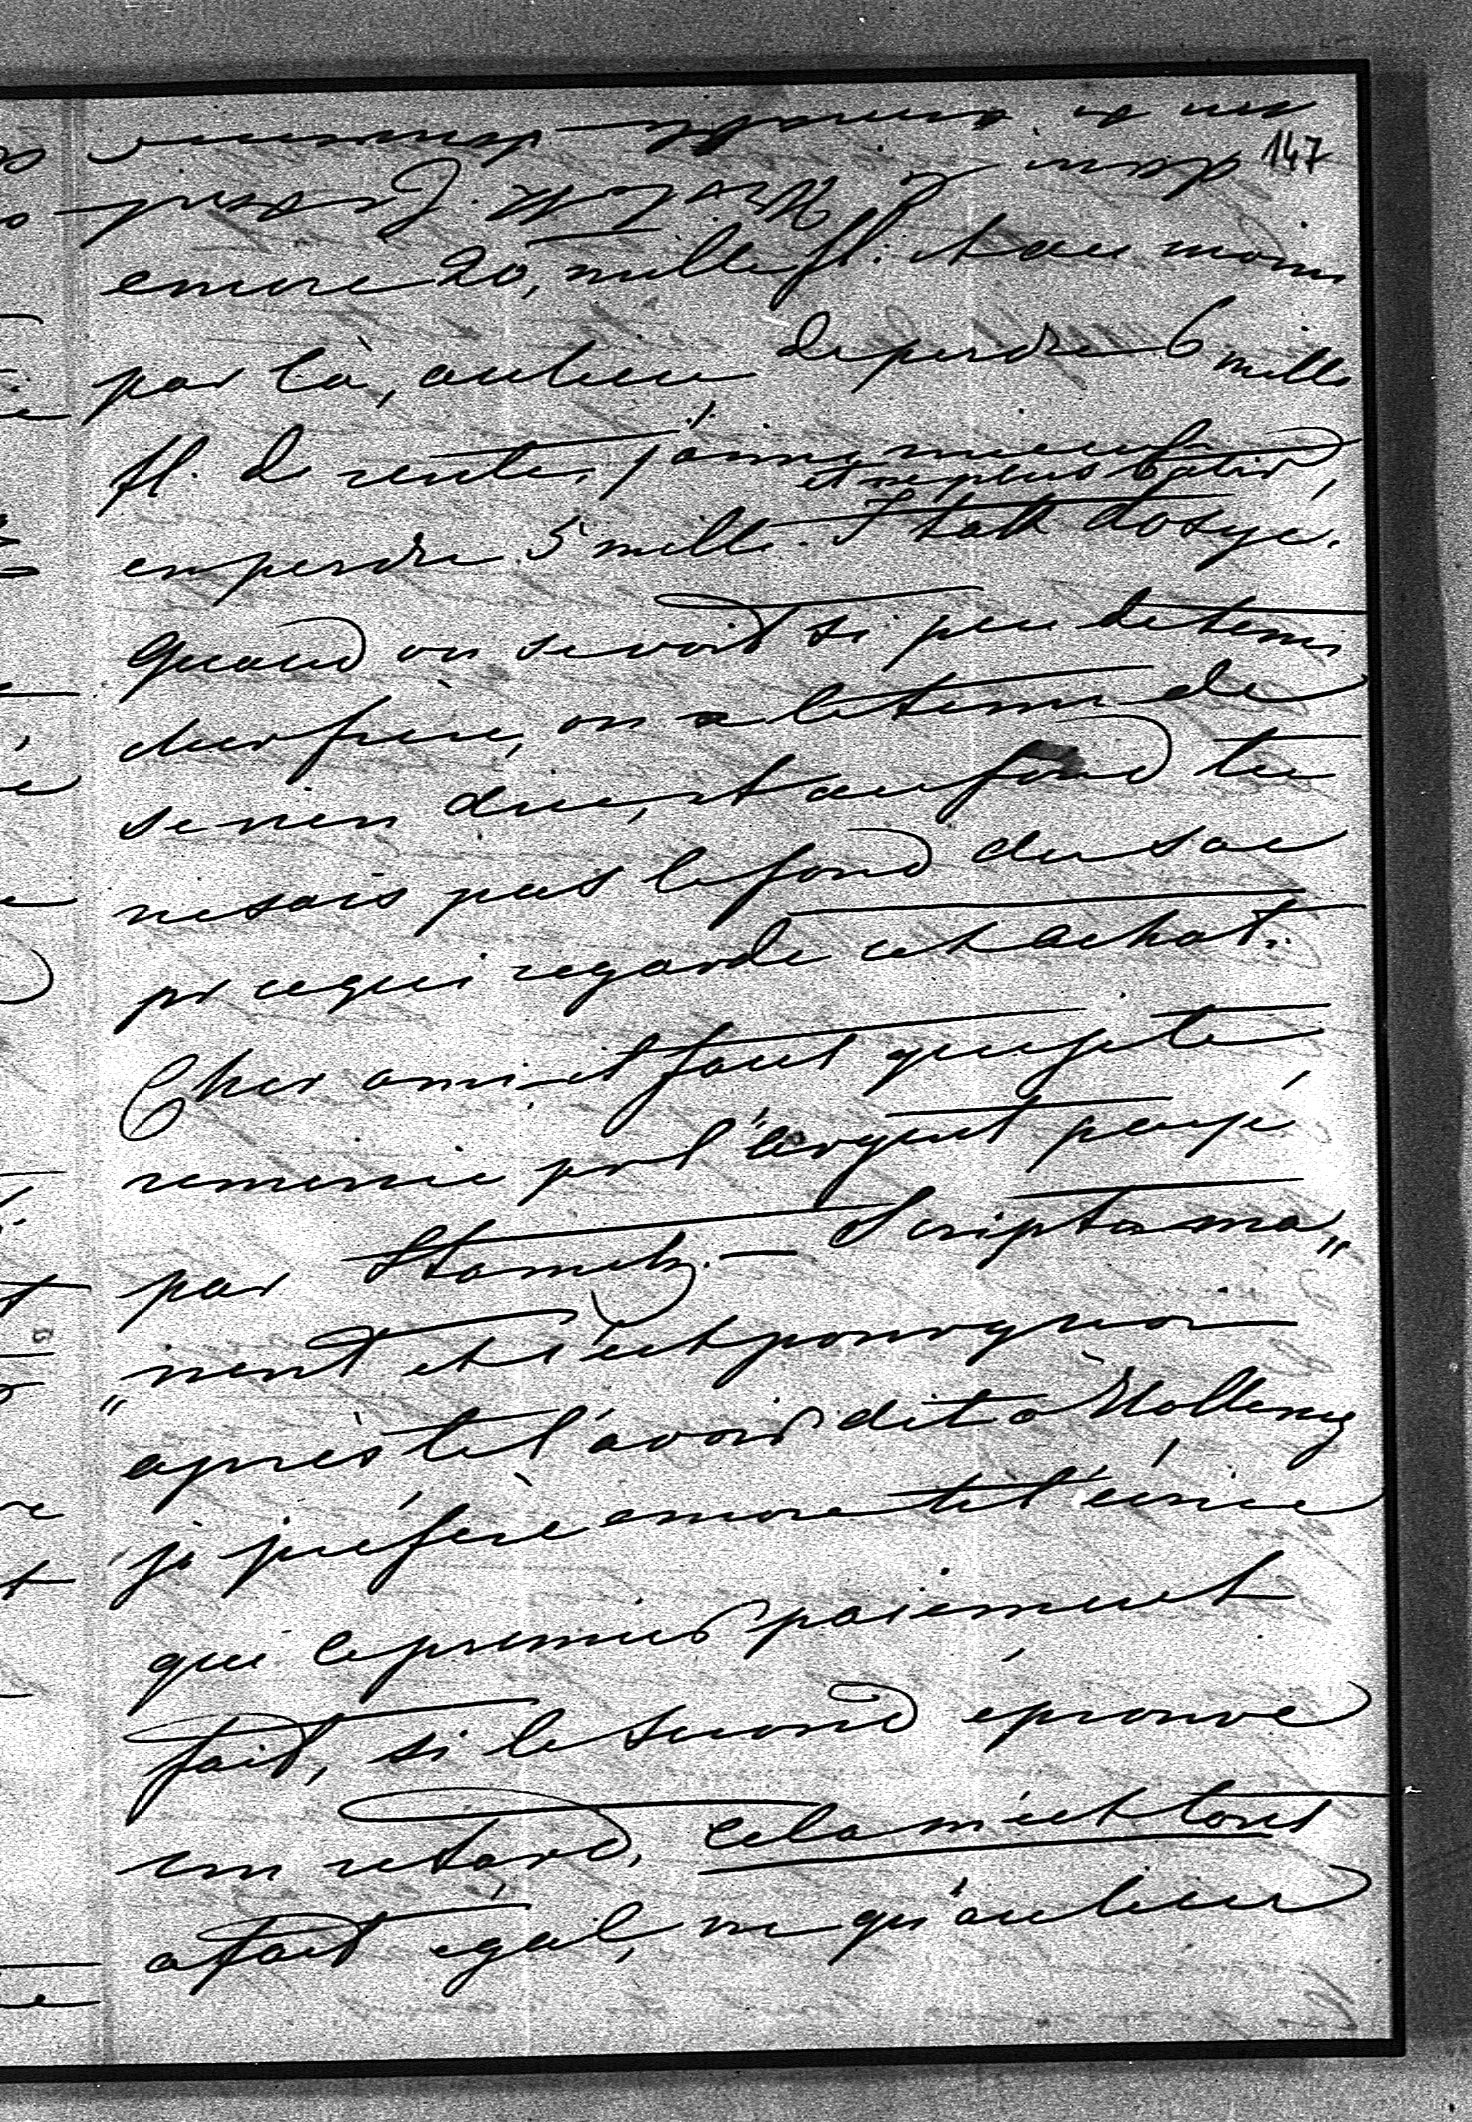 147
encore 20, mille fl. et au moins
par là, au lieu de perdre 6 mille
fl. de rente, j'aime mieux
et ne plus batir,
en perdre 5 mille.
Quand on se voit si peu de tems
cher frère, on a le tems de
se rien dire, et au fond tu
ne sais pas le fond du sac
pr ce qui regarde cet achat.
Cher ami, il faut que je te
remercie pr l'argent payé
par Stametz. — Scripta ma„
„nent et c'est pourquoi
après te l'avoir dit à
je préfère encore te l'écrire
que le premier paiement
fait, si le second éprouve
un retard, cela m'est tout
a fait égal, vu qu'au lieu